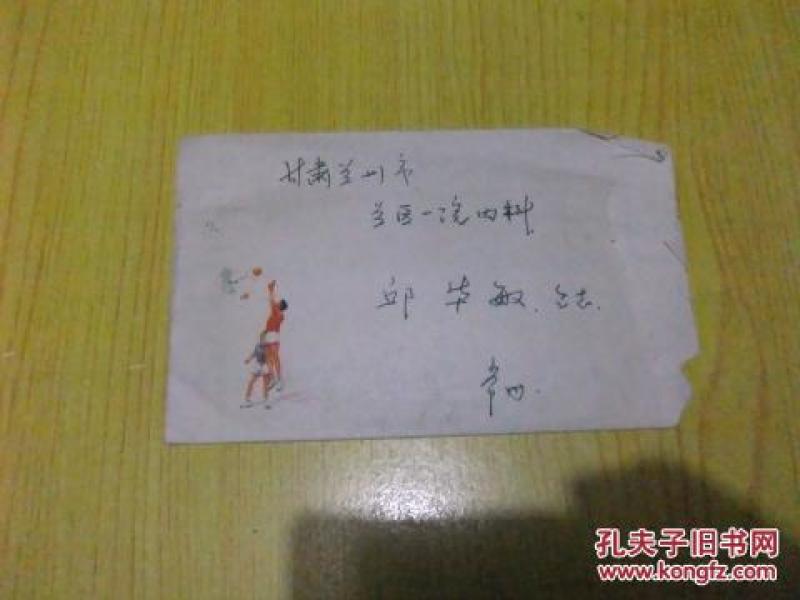 甘肃兰州市
兰医一院内科
邱华敏 同志
常
孔夫子旧书网
www.kongfz.com